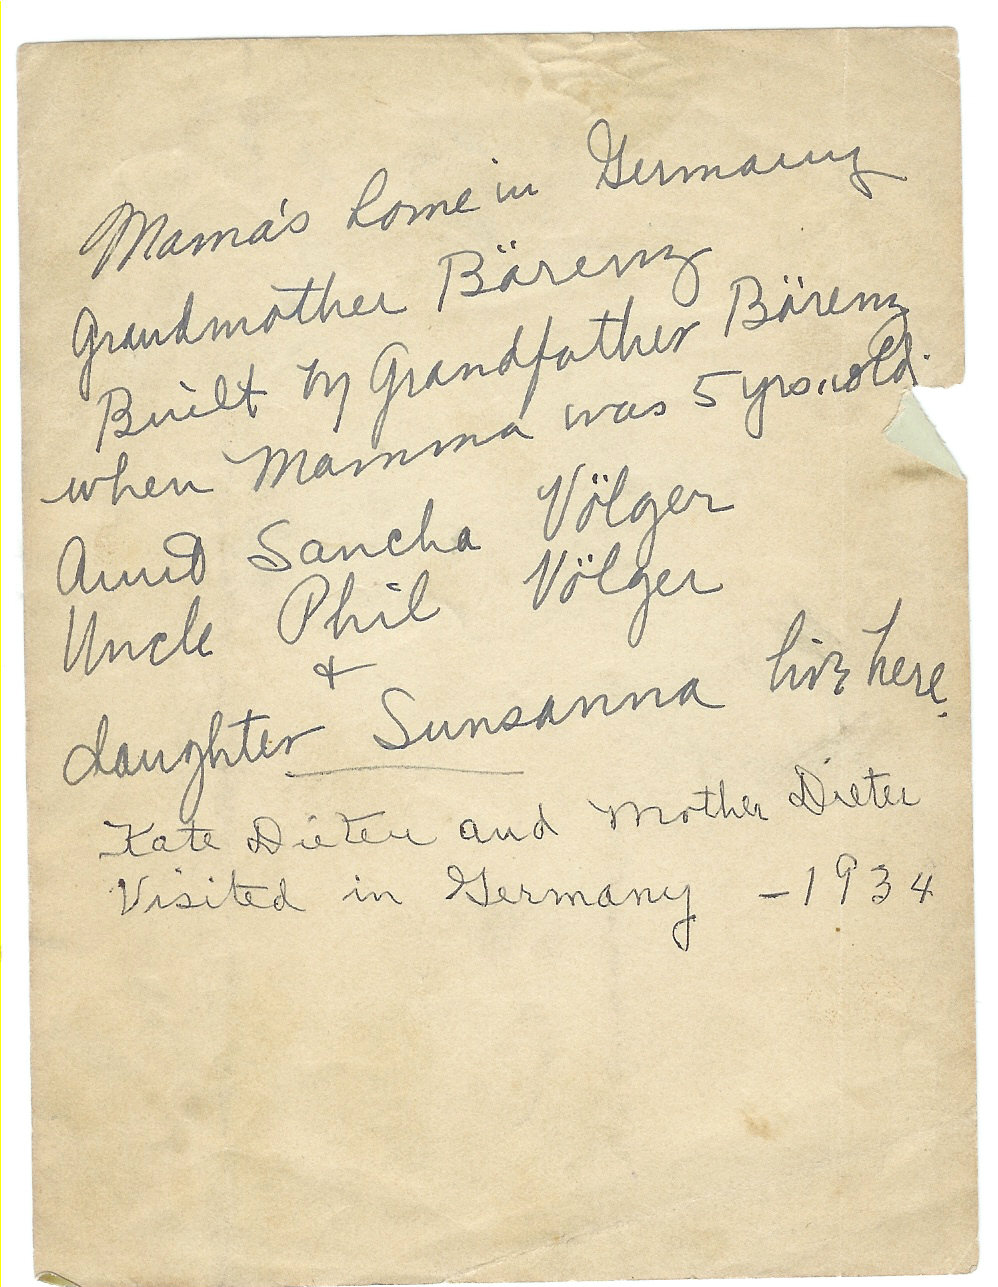 Mama's home in Germany
Grandmother Bärenz
Built by Grandfather Bärenz
when Mamma was 5 yrs. old.
Aunt Sancha Völger
Uncle Phil Völger
&
daughter Sunsanna live here.
Kate Dieter and Mother Dieter
Visited in Germany - 1934